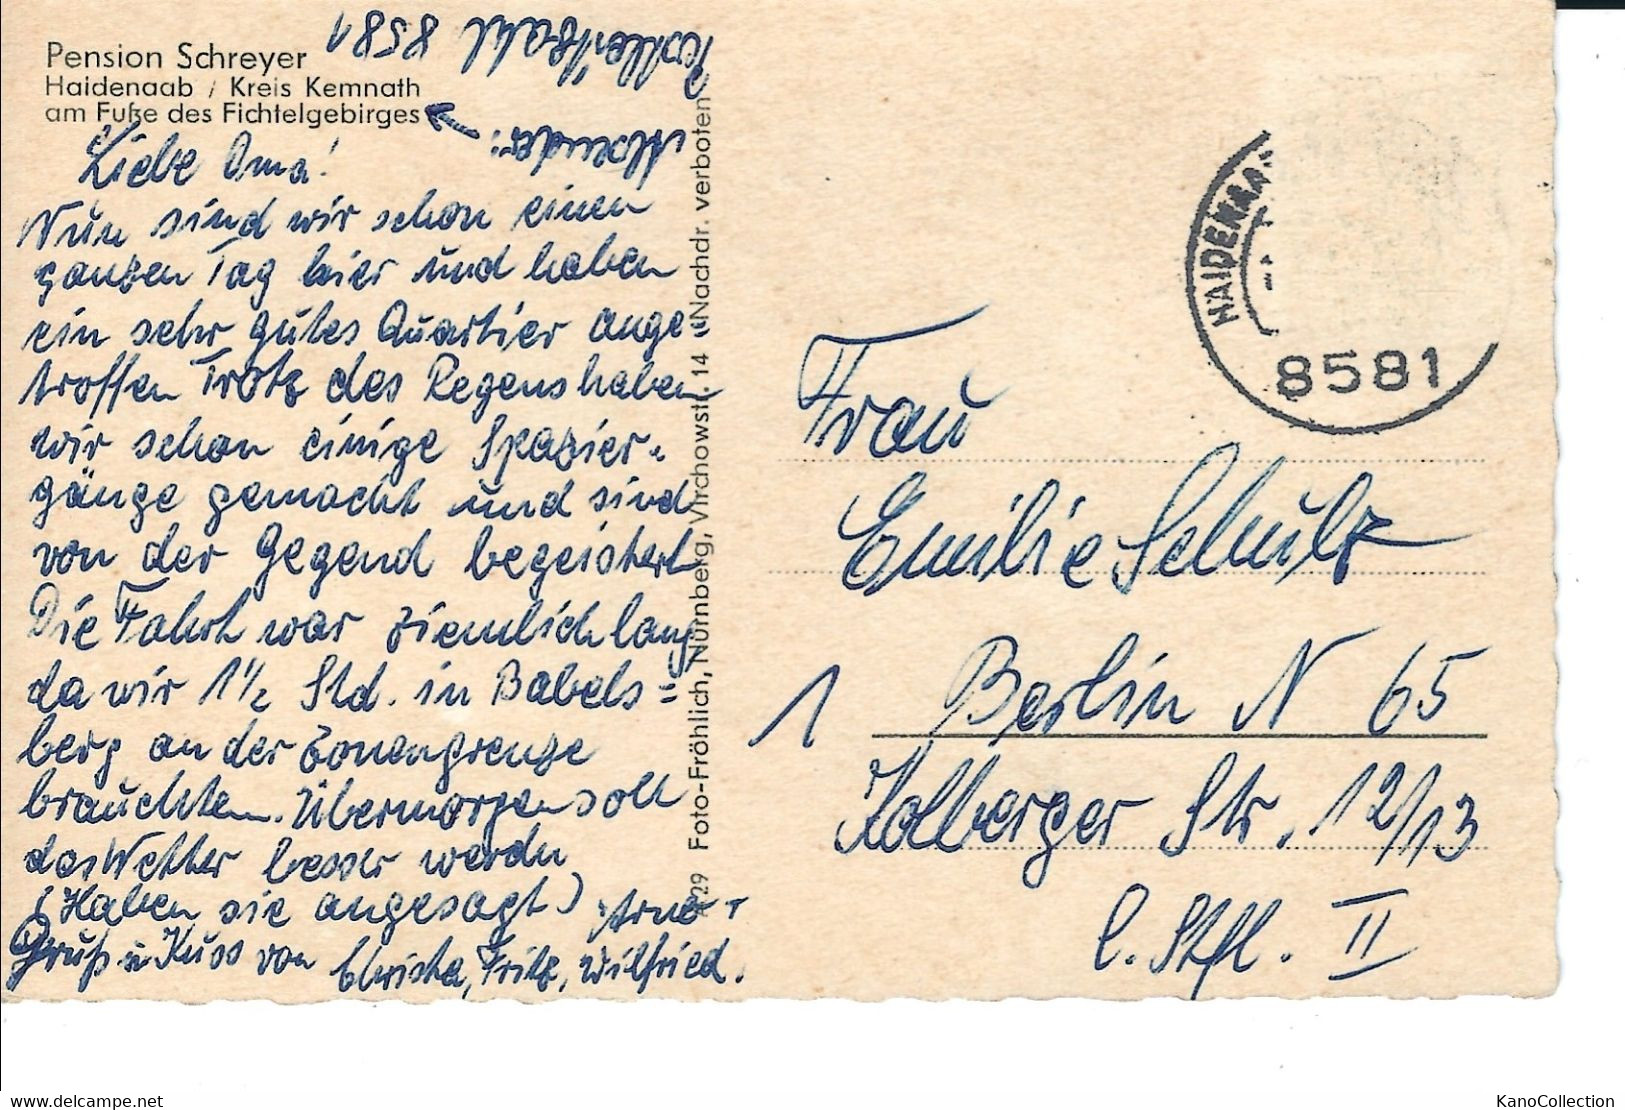 Pension Schreyer
Haidenaab / Kreis Kemnath
am Fuße des Fichtelgebirges
Absender:
Postleitzahl 8581
Liebe Oma!
Nun sind wir schon einen
ganzen Tag hier und haben
ein sehr gutes Quartier ange=
troffen Trotz des Regens haben
wir schon einige Spazier-
gänge gemacht und sind
von der Gegend begeistert
Die Fahrt war ziemlich lang
da wir 1½ Std. in Babels=
berg an der Zonengrenze
brauchten. Übermorgen soll
das Wetter besser werden
(Haben sie angesagt) Arno +
Gruß u Kuss von Christa, Fritz, Wilfried.
29 Foto-Fröhlich, Nürnberg, Virchowstr. 14 - Nachdr. verboten
HAIDENAA
8581
Frau
Emilie Schulz
1 Berlin N 65
Kolberger Str. 12/13
l. Stfl. II
KanoCollection
https://www.delcampe.net